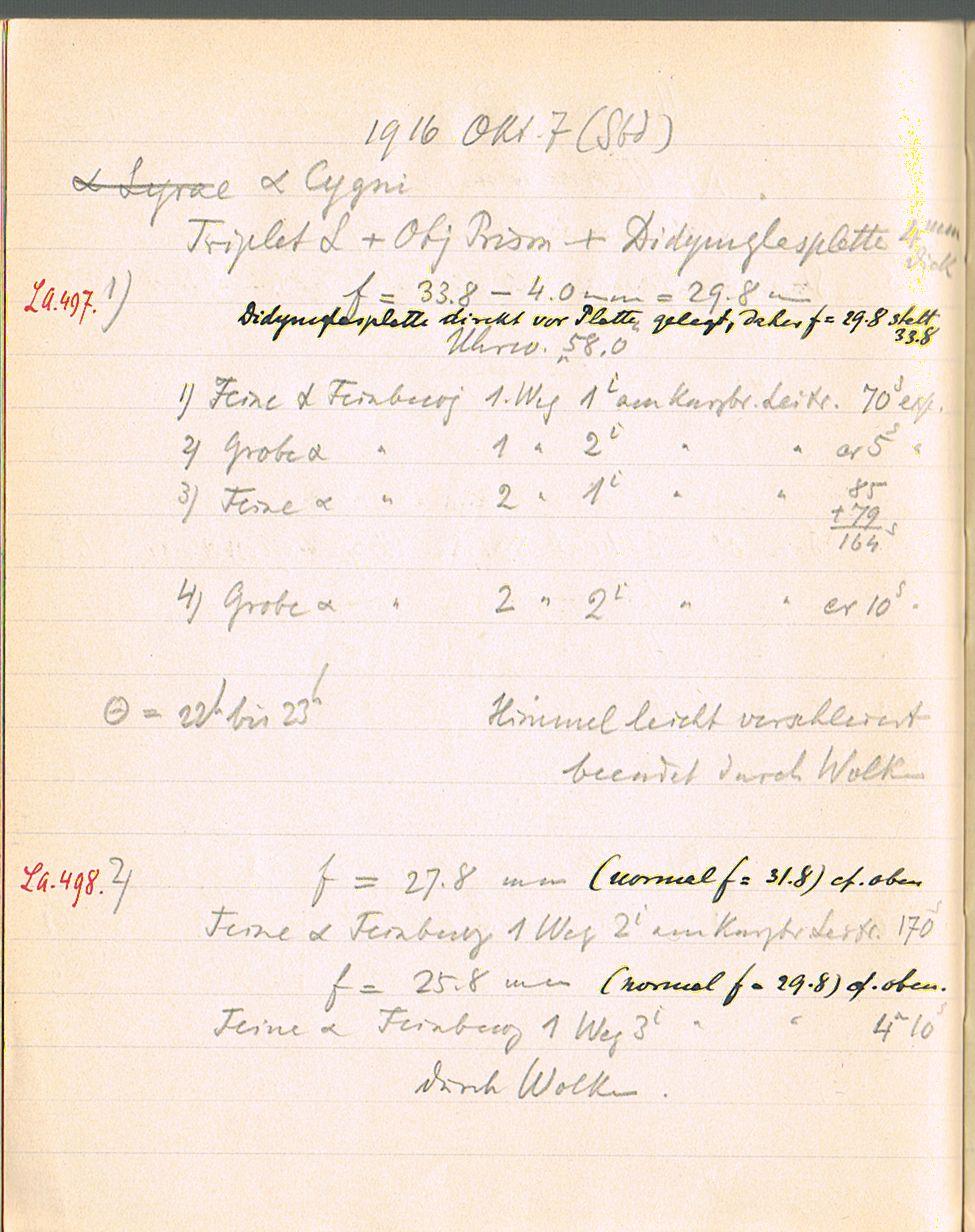 1916 Okt. 7 (Sbd)
α Lyrae α Cygni
Triplet L + Obj Prism + Didymglasplatte 4 mm
dick
La.497. 1) f = 33.8 – 4.0 mm = 29.8 mm
Didymglasplatte direkt vor Platte gelegt, daher f = 29.8 statt
33.8
Uhrw. 58.0
1) Feine α Feinbewg 1. Weg 1 am Leitr. 70s exp.
2) Grobe α " 1 " 2 " " 5s "
3) Feine α " 2 " 1 " " 85
+ 79
164s
4) Grobe α " 2 " 2 " " 10s "
Θ = 22h bis 23h Himmel leicht verschleiert
beendet durch Wolken
La.498. 2) f = 27.8 mm (normal f = 31.8) cf. oben
Feine α Feinbewg 1 Weg 2 am Leitr. 170s
f = 25.8 mm (normal f = 29.8) cf. oben.
Feine α Feinbewg 1 Weg 3 " " 4m 10s
durch Wolken.